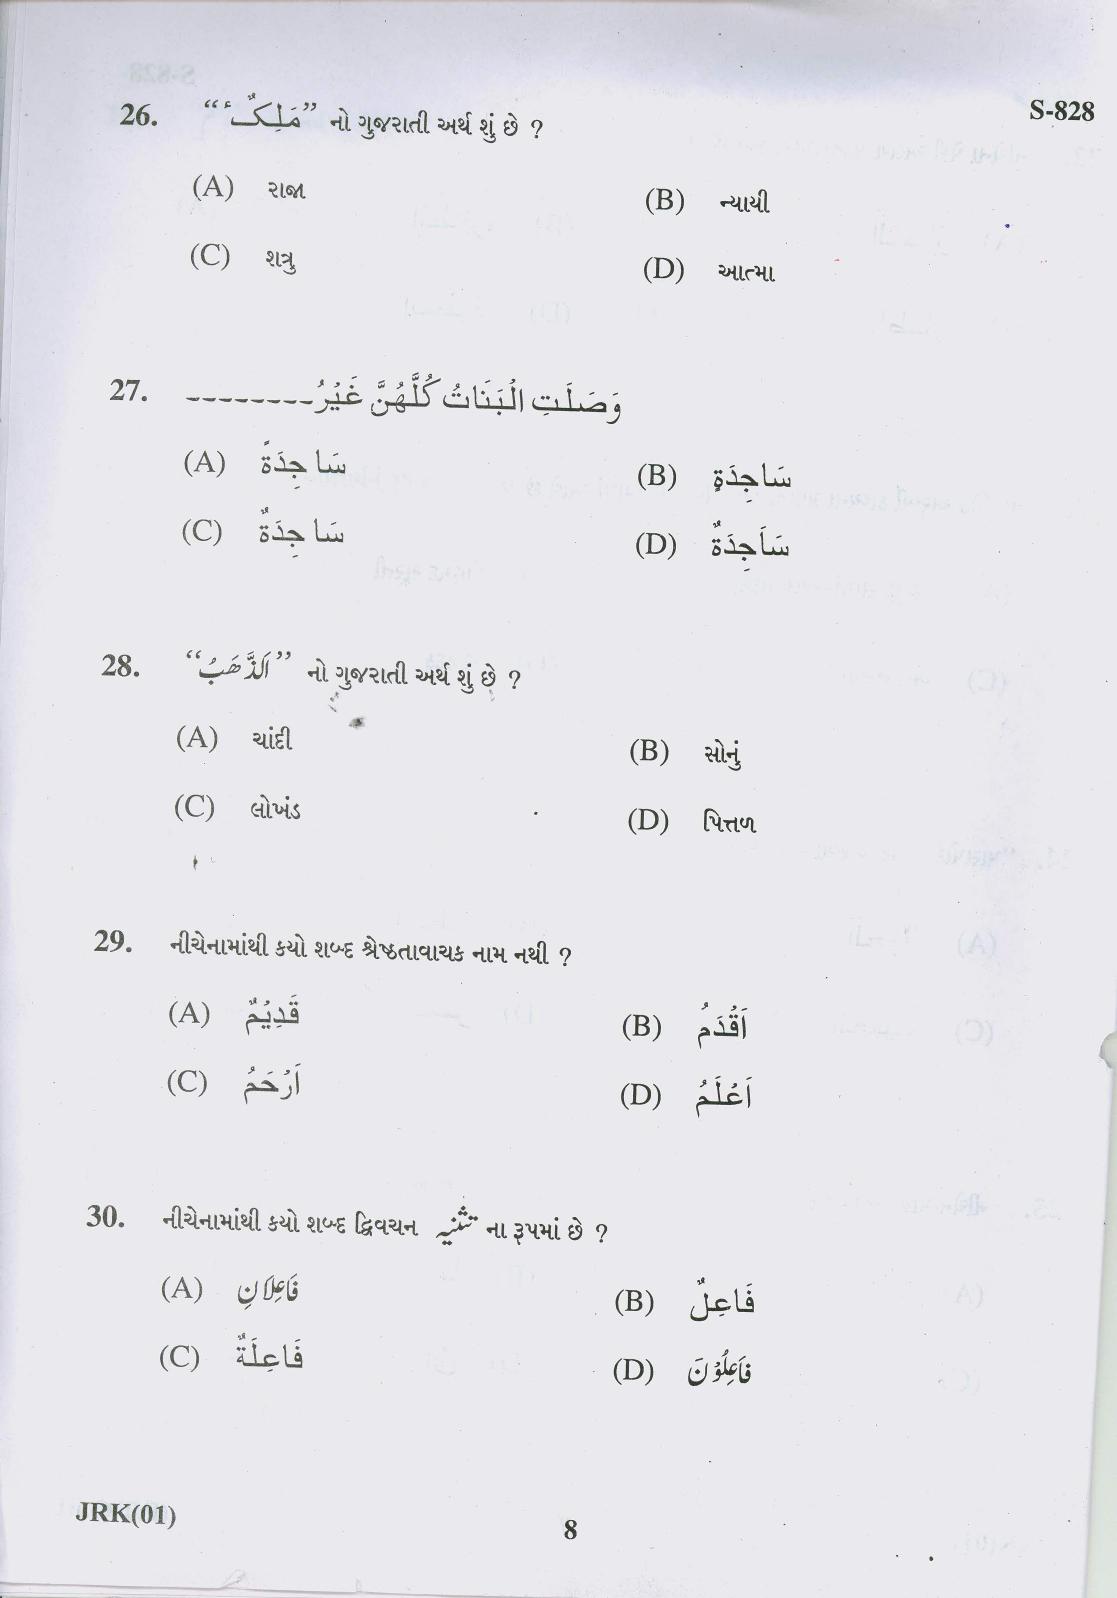 S-828
26. “مَلِكٌ” નો ગુજરાતી અર્થ શું છે ?
(A) રાજા (B) ન્યાયી
(C) શત્રુ (D) આત્મા
27. وَصَلَتِ الْبَنَاتُ كُلُّهُنَّ غَيْرُ --------
(A) سَاجِدَةً (B) سَاجِدَةٍ
(C) سَاجِدَةٌ (D) سَأجِدَةٌ
28. “اَلذَّهَبُ” નો ગુજરાતી અર્થ શું છે ?
(A) ચાંદી (B) સોનું
(C) લોખંડ (D) પિત્તળ
29. નીચેનામાંથી કયો શબ્દ શ્રેષ્ઠતાવાચક નામ નથી ?
(A) قَدِيْمٌ (B) اَقْدَمُ
(C) اَرْحَمُ (D) اَعْلَمُ
30. નીચેનામાંથી કયો શબ્દ દ્વિવચન تثنیہ ના રૂપમાં છે ?
(A) فَاعِلَانِ (B) فَاعِلٌ
(C) فَاعِلَةٌ (D) فَاعِلُوْنَ
JRK(01)
8